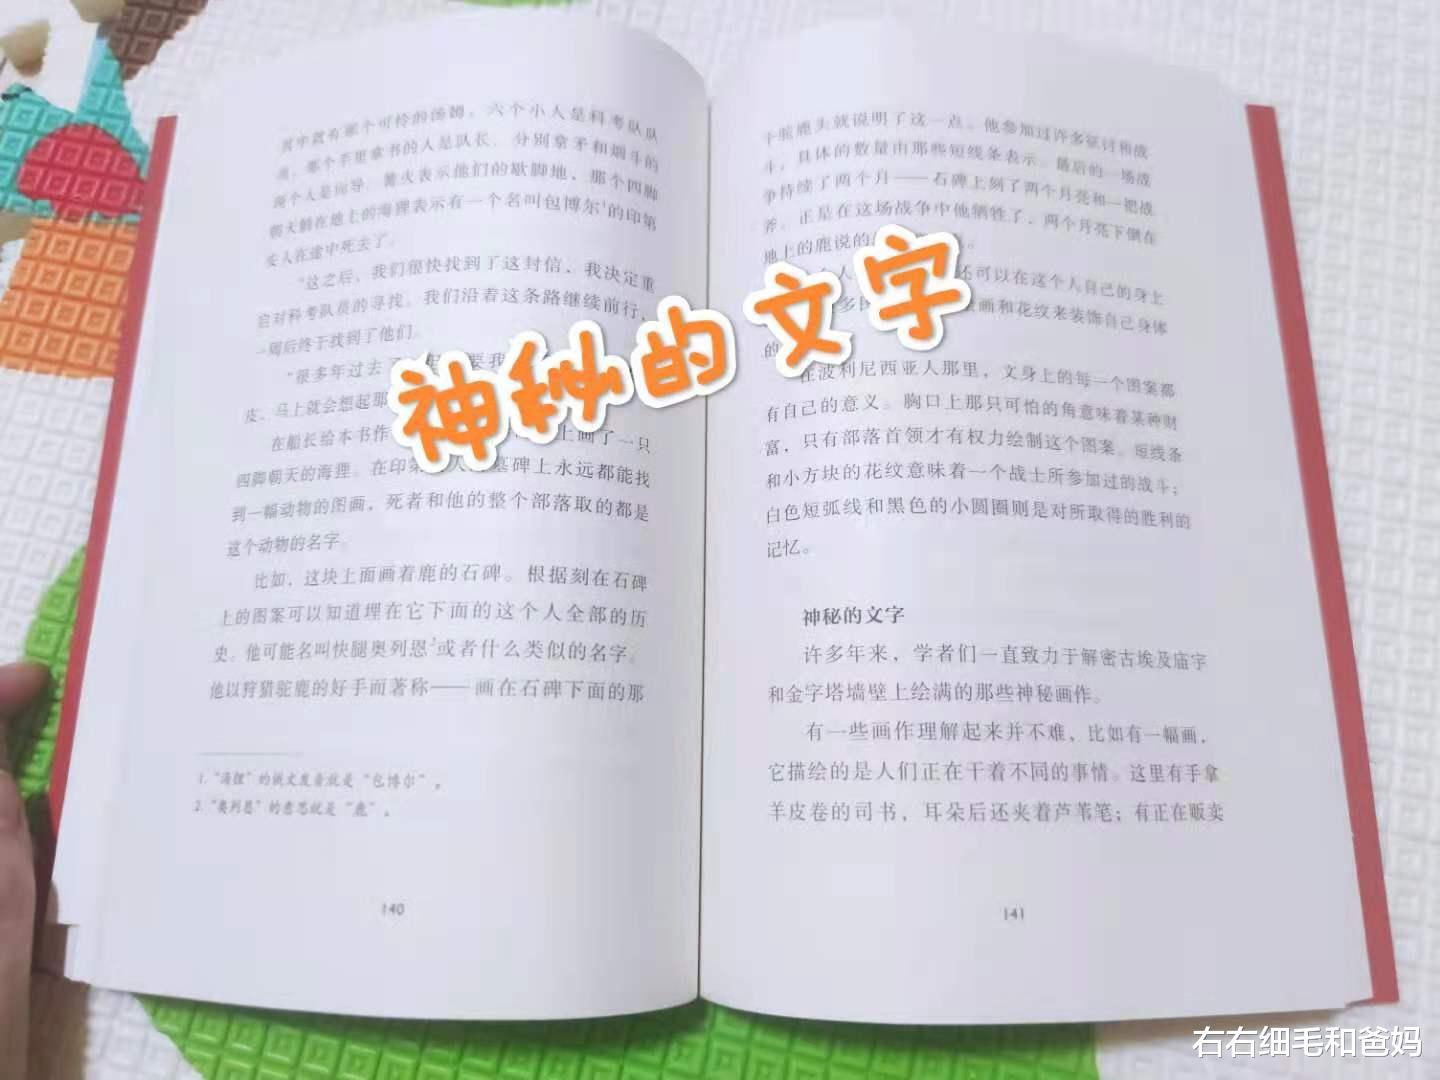 其中就有那个可怜的汤姆。六个小人是科考队队
员，那个手里拿书的人是队长，分别拿矛和烟斗的
两个人是向导，篝火表示他们的歇脚地，那个四脚
朝天躺在地上的海狸表示有一个名叫包博尔¹的印第
安人在途中死去了。
“这之后，我们很快找到了这封信，我决定重
启对科考队员的寻找。我们沿着这条路继续前行，
一周后终于找到了他们。
“很多年过去了 要我
皮，马上就会想起那
在船长给本书作 上画了一只
四脚朝天的海狸。在印第 人 墓碑上永远都能找
到一幅动物的图画，死者和他的整个部落取的都是
这个动物的名字。
比如，这块上面画着鹿的石碑。根据刻在石碑
上的图案可以知道埋在它下面的这个人全部的历
史。他可能名叫快腿奥列恩²或者什么类似的名字。
他以狩猎驼鹿的好手而著称——画在石碑下面的那
1. “海狸”的俄文发音就是“包博尔”。
2. “奥列恩”的意思就是“鹿”。
140
个驼鹿头就说明了这一点。他参加过许多征讨和战
斗，具体的数量由那些短线条表示。最后的一场战
争持续了两个月——石碑上刻了两个月亮和一把战
斧。正是在这场战争中他牺牲了，两个月亮下倒在
地上的鹿说的 。
人 还可以在这个人自己的身上
多民 画和花纹来装饰自己身体
的
在波利尼西亚人那里，文身上的每一个图案都
有自己的意义。胸口上那只可怕的角意味着某种财
富，只有部落首领才有权力绘制这个图案。短线条
和小方块的花纹意味着一个战士所参加过的战斗；
白色短弧线和黑色的小圆圈则是对所取得的胜利的
记忆。
神秘的文字
许多年来，学者们一直致力于解密古埃及庙宇
和金字塔墙壁上绘满的那些神秘画作。
有一些画作理解起来并不难，比如有一幅画，
它描绘的是人们正在干着不同的事情。这里有手拿
羊皮卷的司书，耳朵后还夹着芦苇笔；有正在贩卖
141
神秘的文字
右右细毛和爸妈